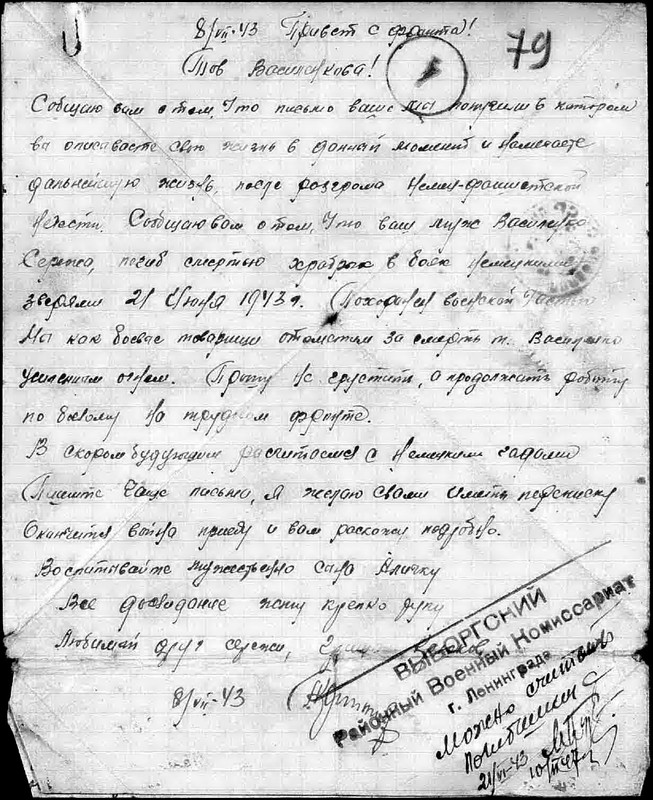 8/VII-43 Привет с фронта!
79
Тов Василькова!
Собщаю вам о том, что письмо ваше мы получили в котором
вы описываете свою жизнь в данный момент и намечаете
дальнейшую жизнь, после розгрома немец-фашистской
нечести. Собщаю вам о том, что ваш муж
Сережа, погиб смертью храбрых в боях немецкими
зверями 21 Июня 1943 г. Похоронен воинской частью
Мы как боевые товарищи отомстим за смерть т.
усиленим огнем. Прошу не грустить, а продолжать роботу
по боевому на трудовом фронте.
В скором будующим расчитаемся с немецкими гадами
Пишите чаще письма, я желаю с вами иметь переписку
Окончится война приеду и вам раскажу подробно.
Воспитывайте мужественно сына Аличку
Все досвидание жму крепко руку
Любимый друг сережи,
8/VII-43
ВЫБОРГСКИЙ
Районный Военный Комиссариат
г. Ленинграда
Можно считать
Погибшим с
21/VI-43
10/II 47